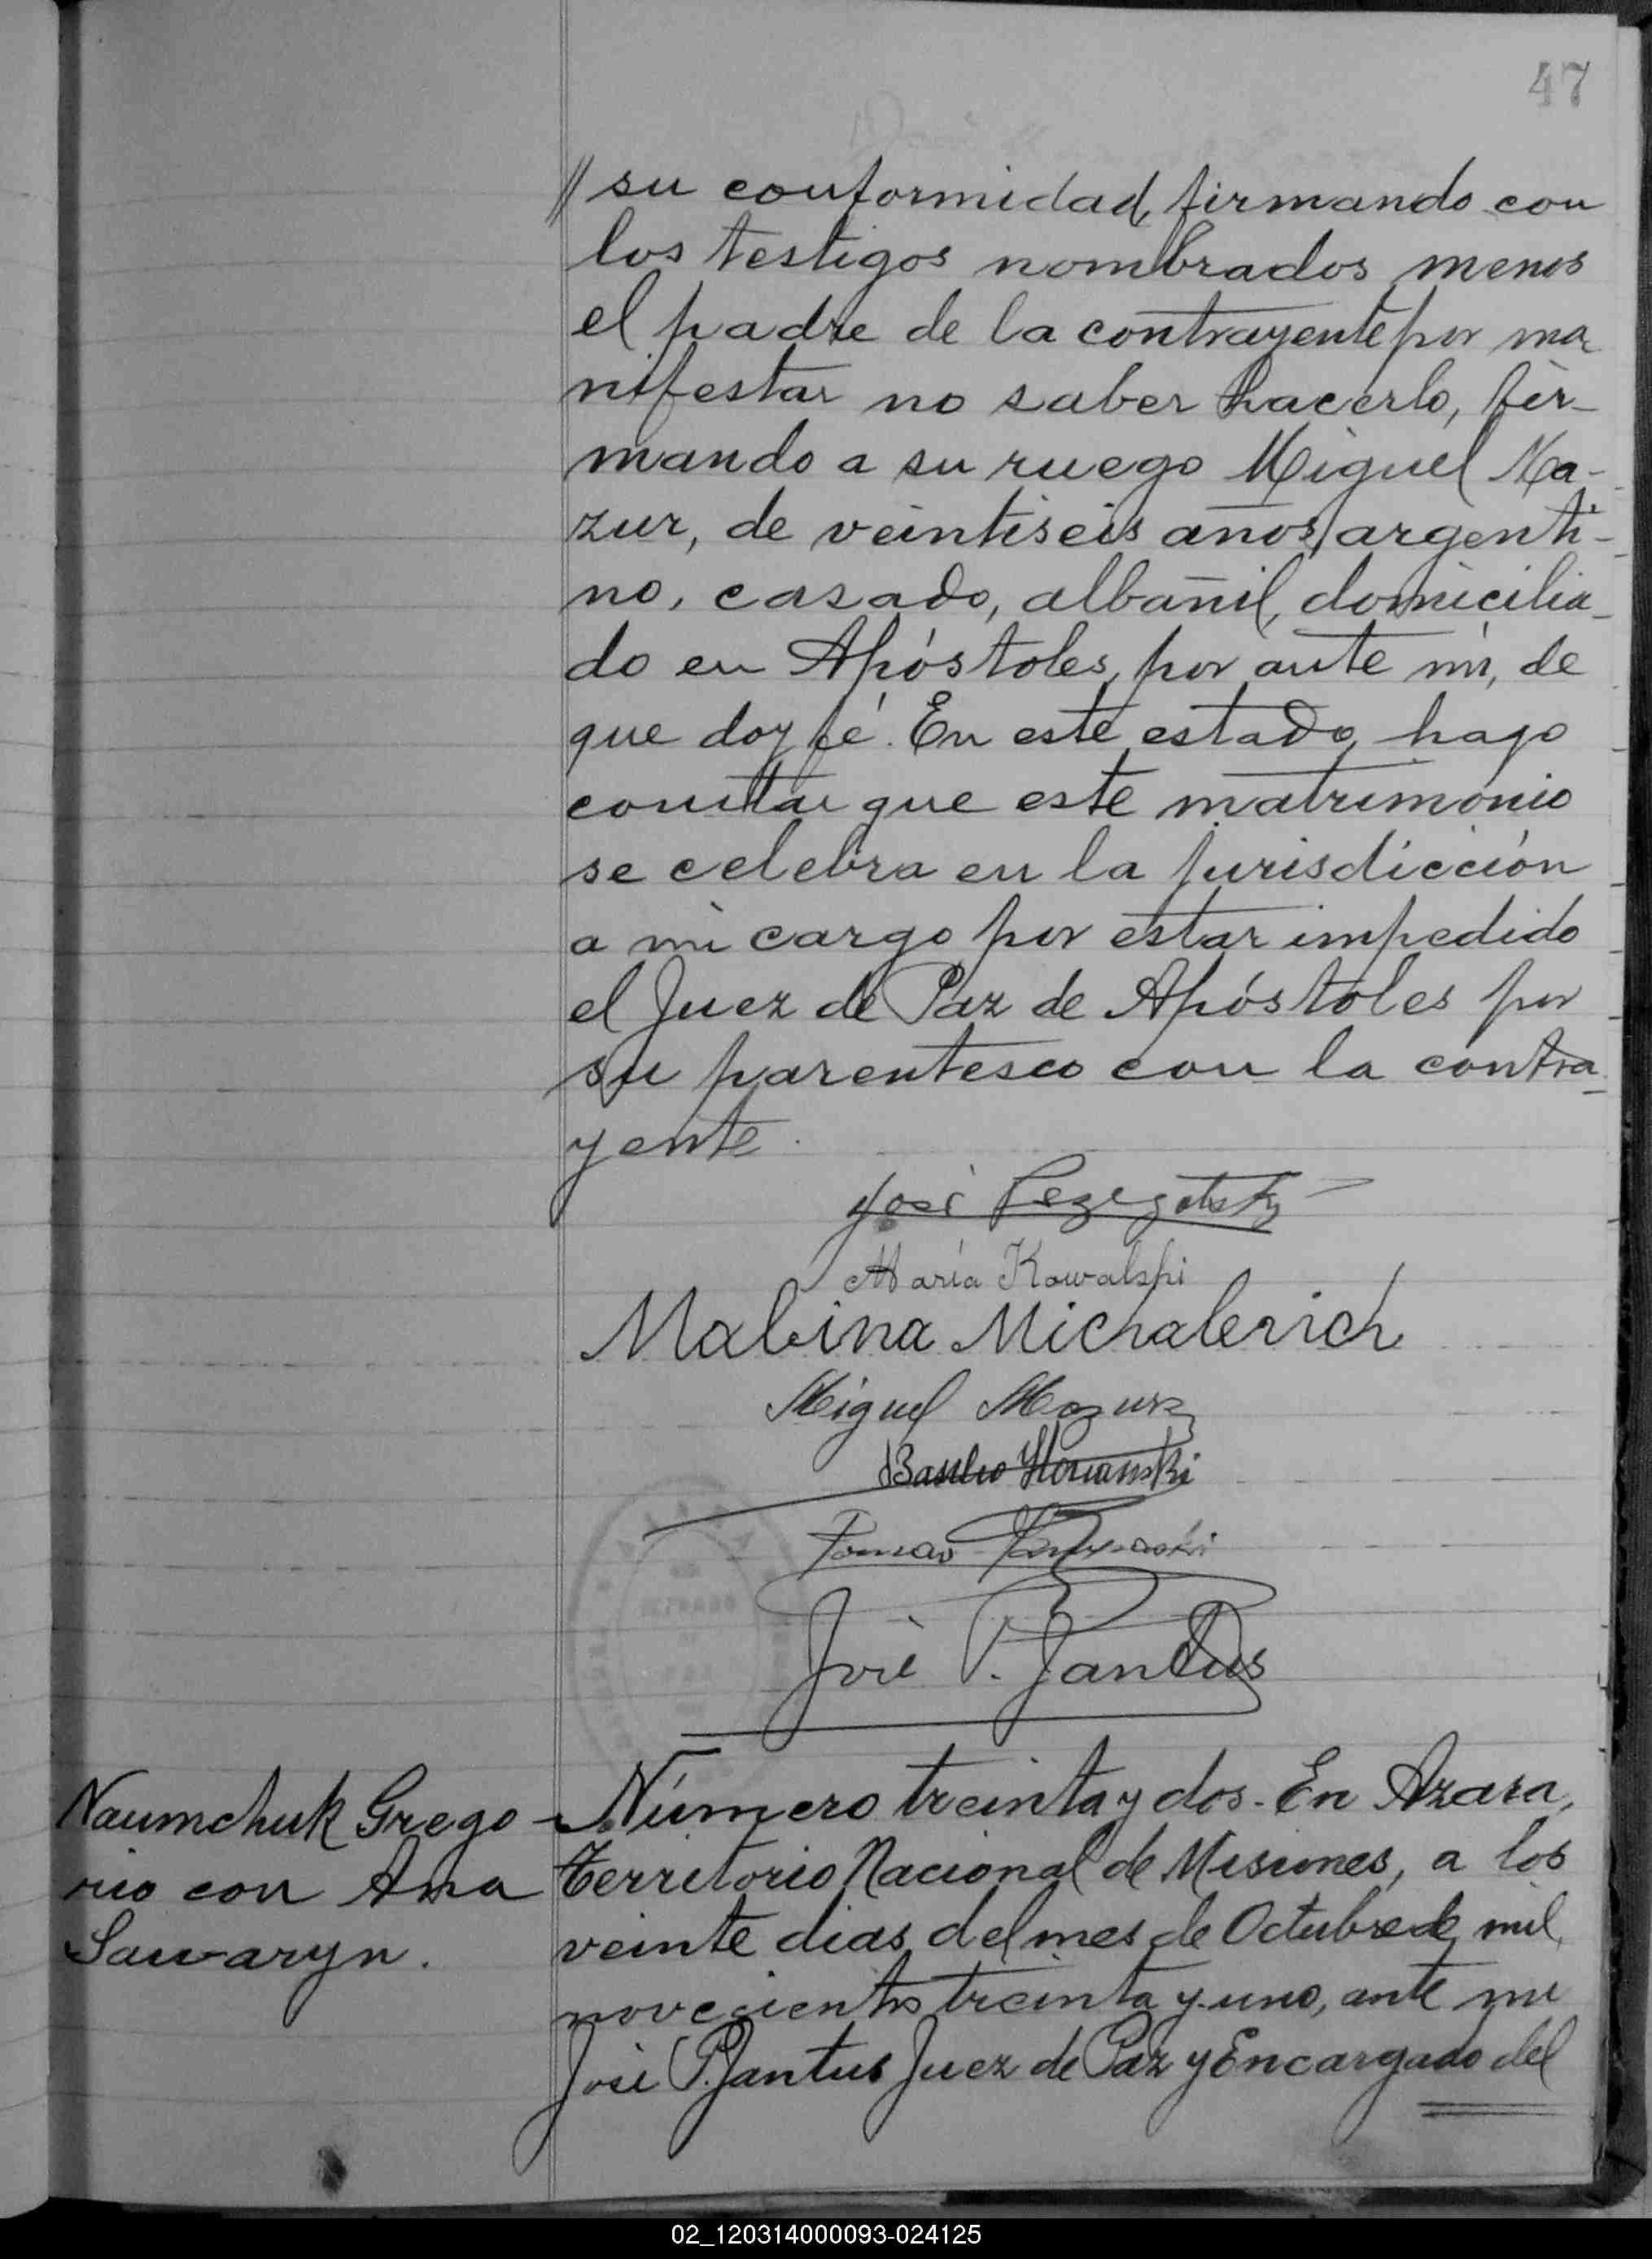 47
// su conformidad, firmando con
los testigos nombrados menos
el padre de la contrayente por ma
nifestar no saber hacerlo, fir-
mando a su ruego Miguel Ma-
zur, de veintiseis años, argenti-
no, casado, albañil, domicilia-
do en Apóstoles, por ante mi, de
que doy fé. En este estado hago
constar que este matrimonio
se celebra en la jurisdicción
a mi cargo por estar impedido
el Juez de Paz de Apóstoles por
su parentesco con la contra-
yente.
José
María Kowalski
Malvina Michalevich
Miguel Mazur
Basilio
Tomas
José P. Jantus
Naumchuk Grego-
rio con Ana
Sawaryn.
Número treinta y dos. En Azara,
Territorio Nacional de Misiones, a los
veinte dias del mes de Octubre de mil
novecientos treinta y uno, ante mi
José P. Jantus Juez de Paz y Encargado del
02_120314000093-024125